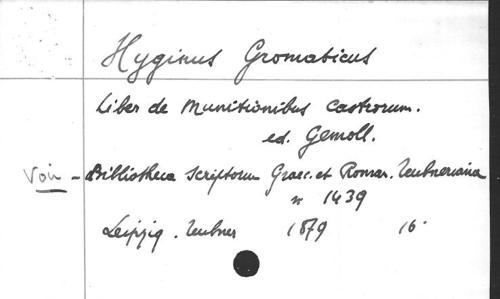 Hyginus Gromaticus
Liber de Munitionibus castrorum.
ed. Gemoll.
Voir - Bibliotheca scriptorum Graec. et Roman. Teubneriana
n° 1439
Leipzig. Teubner 1879 16°